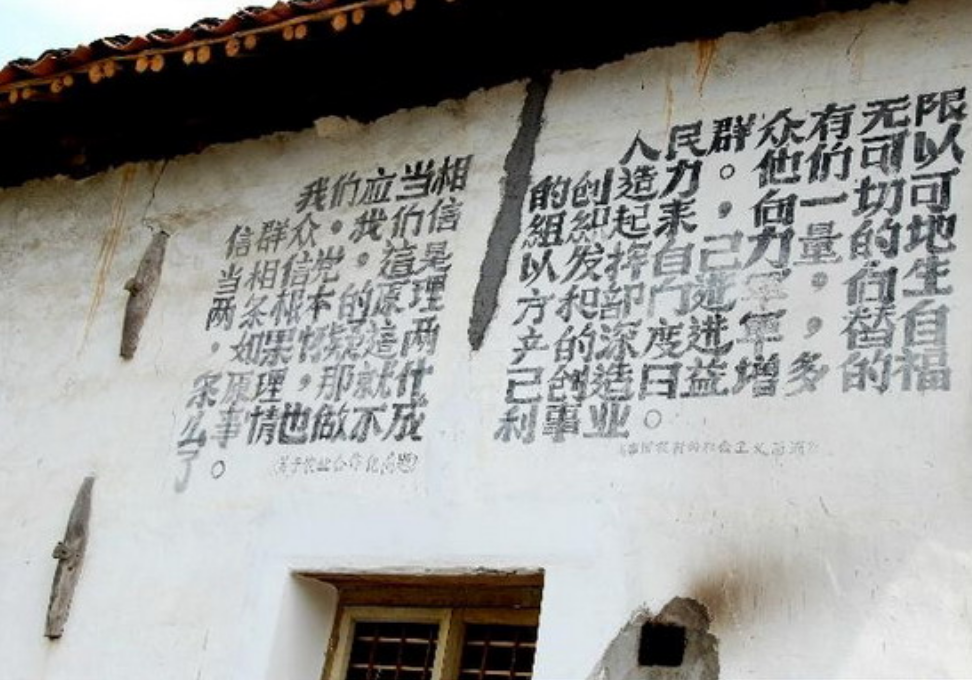 我们应当相
信群众。我们信
当相信党。這是
两条根本的原理
，如果怀疑這两
条原理，那就什
么事情也做不成
了。
（关于农业合作化问题）
人民群众有无限
的创造力。他们可以
組织起来，向一切可
以发挥自己力量的地
方和部门进军。向生
产的深度进军，替自
己创造日益增多的福
利事业。
农村的社会主义